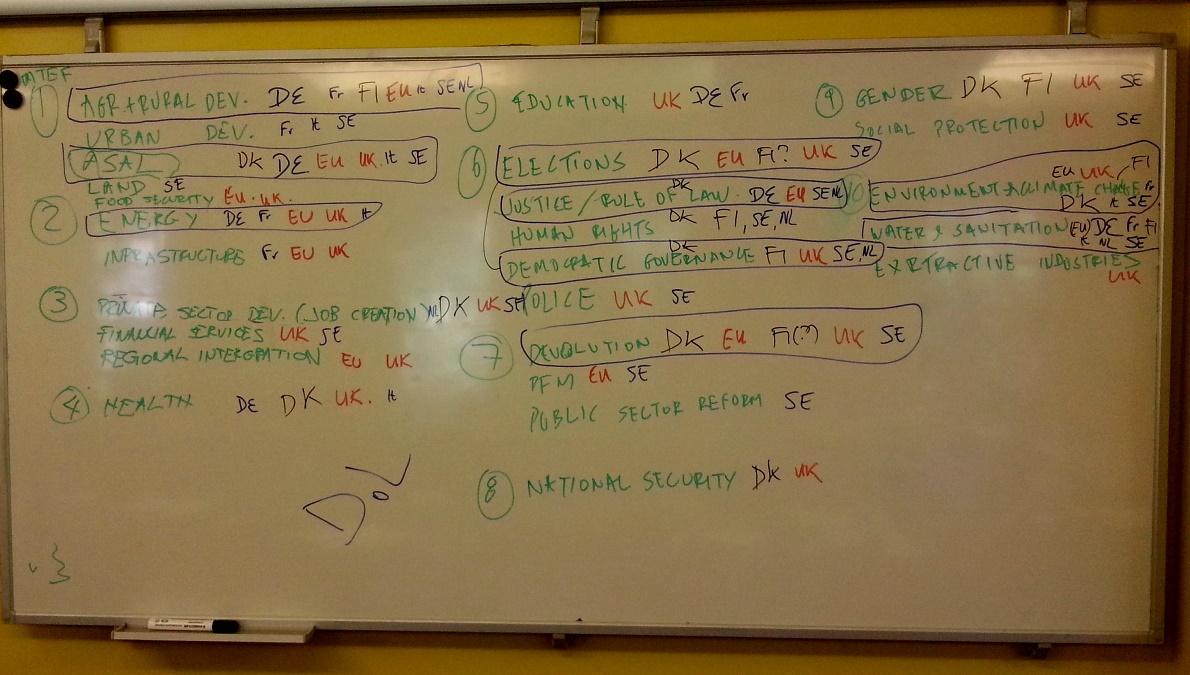 MTEF
1 AGR + RURAL DEV. DE Fr FI EU It SE NL
URBAN DEV. Fr It SE
ASAL DK DE EU UK It SE
LAND SE
FOOD SECURITY EU. UK.
2 ENERGY DE Fr EU UK It
INFRASTRUCTURE Fr EU UK
3 PRIVATE SECTOR DEV. (JOB CREATION) NL DK UK SE
FINANCIAL SERVICES UK SE
REGIONAL INTERGRATION EU UK
4 HEALTH DE DK UK. It
5 EDUCATION UK DE Fr
6 ELECTIONS DK EU FI? UK SE
JUSTICE / RULE OF LAW. DK DE EU SE NL
HUMAN RIGHTS DK FI, SE, NL
DEMOCRATIC GOVERNANCE DK FI UK SE, NL
POLICE UK SE
7 DEVOLUTION DK EU FI(?) UK SE
PFM EU SE
PUBLIC SECTOR REFORM SE
8 NATIONAL SECURITY DK UK
9 GENDER DK FI UK SE
SOCIAL PROTECTION UK SE
EU UK, FI
10 ENVIRONMENT & CLIMATE CHANGE Fr
DK It SE
WATER & SANITATION (EU) DE Fr FI
It NL SE
EXRTRACTIVE INDUSTRIES
UK